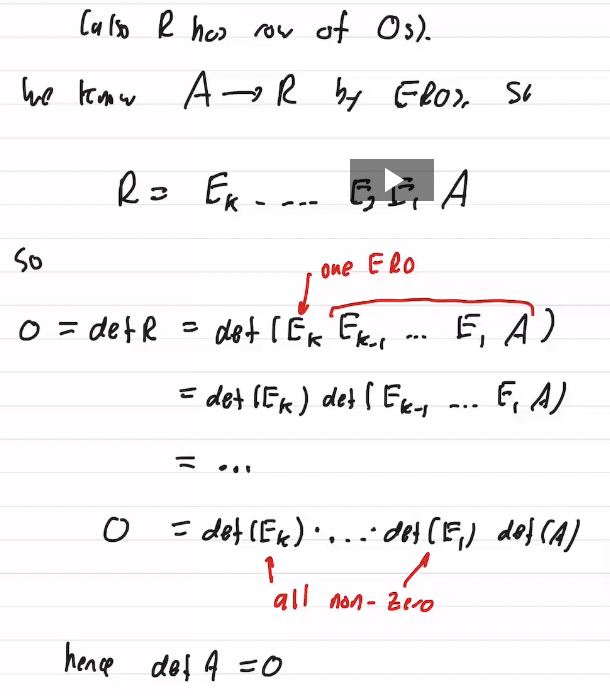 (also R has row of 0s).
We know A → R by EROs. So
R = E_k ..... E_2 E_1 A
So
one ERO
0 = det R = det (E_k E_{k-1} ... E_1 A)
= det (E_k) det (E_{k-1} ... E_1 A)
= ...
0 = det (E_k) · ... · det (E_1) det (A)
all non-zero
hence det A = 0